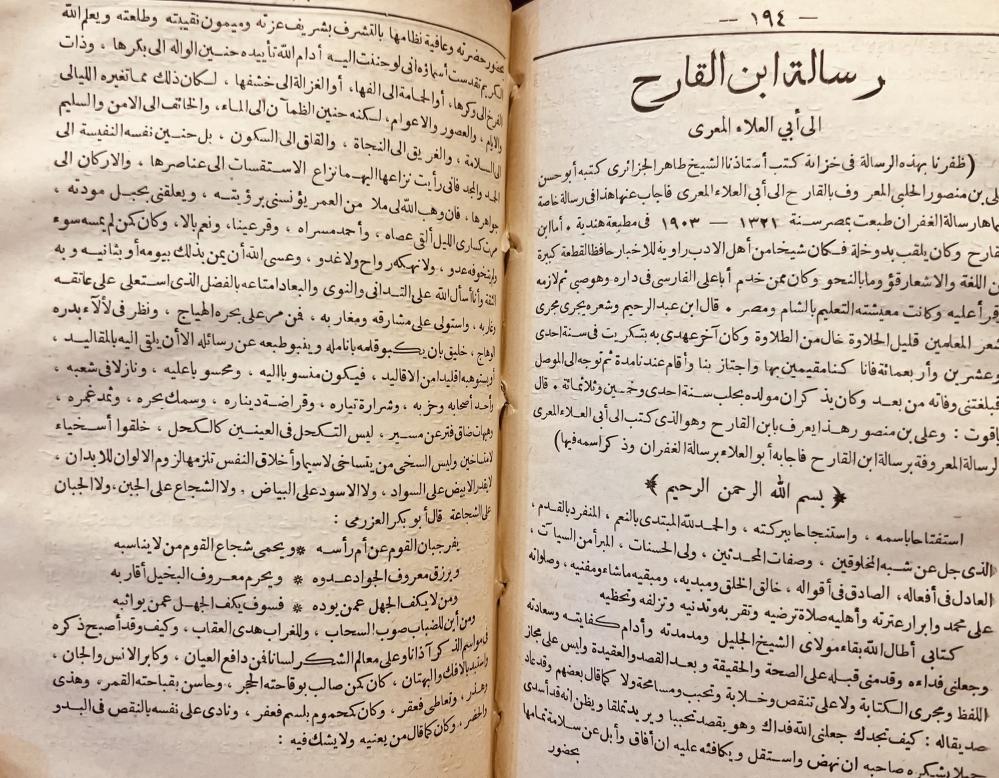 — ١٩٤ —
رسالة ابن القارح
الى أبي العلاء المعرى
(ظفرنا بهذه الرسالة فى خزانة كتب أستاذنا الشيخ طاهر الجزائرى كتبه أبو حسن
بن منصور الحلبى المعروف بالقارح الى أبى العلاء المعرى فاجاب عنها هذا فى رسالة خاصة
رسالة الغفران طبعت بمصر سنة ١٣٢١ — ١٩٠٣ فى مطبعة هندية . أما ابن
وكان يلقب بدوخلة فكان شيخا من أهل الادب راوية للاخبار حافظا لقطعة كبيرة
اللغة والاشعار قؤوما بالنحو وكان ممن خدم أبا على الفارسى فى داره وهو صبى ثم لازمه
عليه وكانت معيشته التعليم بالشام ومصر . قال ابن عبد الرحيم وشعره يجرى مجرى
شعر المعلمين قليل الحلاوة خال من الطلاوة وكان آخر عهدى به بتكريت فى سنة احدى
وعشرين وأربعمائة فانا كنا مقيمين بها واجتاز بنا وأقام عندنا مدة ثم توجه الى الموصل
فبلغتنى وفاته من بعد وكان يذكر ان مولده بحلب سنة احدى وخمسين وثلاثمائة . قال
ياقوت : وعلى بن منصور هذا يعرف بابن القارح وهو الذى كتب الى أبى العلاء المعرى
الرسالة المعروفة برسالة ابن القارح فاجابه أبو العلاء برسالة الغفران وذكر اسمه فيها)
﴿ بسم الله الرحمن الرحيم ﴾
استفتاحا باسمه ، واستنجاحا ببركته ، والحمد لله المبتدى بالنعم ، المنفرد بالقدم ،
الذى جل عن شبه المخلوقين ، وصفات المحدثين ، ولى الحسنات ، المبرأ من السيآت ،
العادل فى أفعاله ، الصادق فى أقواله ، خالق الخلق ومبديه ، ومبقيه ما شاء ومفنيه ، وصلواته
على محمد وابرار عترته وأهليه صلاة ترضيه وتقربه وتدنيه وتزلفه وتحظيه
كتابى أطال الله بقاء مولاى الشيخ الجليل ومد مدته وأدام كفايته وسعادته
وجعلنى فداءه وقدمنى قبله على الصحة والحقيقة وبعد القصد والعقيدة وليس على مجاز
اللفظ ومجرى الكتابة ولا على تنقص وخلابة وتحبب ومسامحة ولا كما قال بعضهم وقد عاد
صديقا له : كيف تجدك جعلنى الله فداك وهو يقصد تحببا ويريد تملقا ويظن انه قد أسدى
جميلا يشكره صاحبه ان نهض واستقل ويكافئه عليه ان أفاق وأبل عن سلامة تمامها
بحضور
بحضور حضرته وعافية نظامها بالتشرف بشريف عزته وميمون نقيبته وطلعته ويعلم الله
الكريم تقدست أسماؤه انى لو حننت اليه أدام الله تأييده حنين الواله الى بكرها ، وذات
الفرخ الى وكرها ، أو الحمامة الى الفها ، أو الغزالة الى خشفها ، لكان ذلك مما تغيره الليالى
والايام ، والعصور والاعوام ، لكنه حنين الظمآن الى الماء ، والخائف الى الامن والسليم
الى السلامة ، والغريق الى النجاة ، والقلق الى السكون ، بل حنين نفسه النفيسة الى
الحمد والمجد فانى رأيت نزاعها اليهما نزاع الاستقسات الى عناصرها ، والاركان الى
جواهرها ، فان وهب الله لى ملا من العمر يؤنسنى برؤيته ، ويعلقنى بحبل مودته ،
صرت كسارى الليل ألقى عصاه ، وأحمد مسراه ، وقر عينا ، ونعم بالا ، وكان كمن لم يمسه سوء
ولم يتخوفه عدو ، ولا نهكه رواح ولا غدو ، وعسى الله أن يمن بذلك بيومه أو بثانيه وبه
الثقة وأنا أسأل الله على التدانى والنوى والبعاد امتاعه بالفضل الذى استعلى على عاتقه
وغاربه ، واستولى على مشارقه ومغاربه ، فمن مر على بحره الهياج ، ونظر فى لألآء بدره
الوهاج ، خليق بأن يكبو قلمه بأنامله وينبو طبعه عن رسائله الا أن يلقى اليه بالمقاليد ،
أو يستوهبه اقليدا من الاقاليد ، فيكون منسوبا اليه ، ومحسوبا عليه ، ونازلا فى شعبه ،
وأحد أصحابه وحزبه ، وشرارة تياره ، وقراضة ديناره ، وسمك بحره ، وثمد غمره ،
وهيهات ضاق فتر عن مسير ، ليس التكحل فى العينين كالكحل ، خلقوا أسخياء
لا متساخين وليس السخى من يتساخى لا سيما وأخلاق النفس تلزمها لزوم الالوان للابدان ،
لا يقدر الابيض على السواد ، ولا الاسود على البياض ، ولا الشجاع على الجبن ، ولا الجبان
على الشجاعة قال أبو بكر العزرمى :
يفر جبان القوم عن أم رأسه * ويحمى شجاع القوم من لا يناسبه
ويرزق معروف الجواد عدوه * ويحرم معروف البخيل أقاربه
ومن لا يكف الجهل عمن يوده * فسوف يكف الجهل عمن يواثبه
ومن أين للضباب صوب السحاب ، وللغراب هدى العقاب ، وكيف وقد أصبح ذكره
فى مواسم الذكر آذانا وعلى معالم الشكر لسانا فمن دافع العيان ، وكابر الانس والجان ،
واستبد بالافك والبهتان ، كان كمن صالب بوقاحته الحجر ، وحاسن بقباحته القمر ، وهذى
وهذر ، وتعاطى فعقر ، وكان كمحموم بلسم فعفر ، ونادى على نفسه بالنقص فى البدو
والحضر ، وكان كما قال من يعنيه ولا يشك فيه :